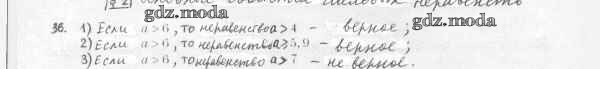 gdz.moda
36. 1) Если a>6, то неравенство a>4 - верное;
gdz.moda
2) Если a>6, то неравенство a≥5,9 - верное;
3) Если a>6, то неравенство a>7 - не верное.